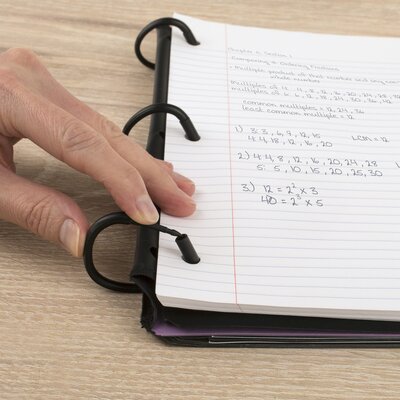 Chapter 6, Section 1
Comparing & Ordering Fractions
- Multiple product of that number and any
whole number
Multiples of 4: 4, 8, 12, 16, 20, 24, 28
Multiples of 6: 6, 12, 18, 24, 30, 36, 42
common multiples = 12, 24, 36
least common multiple = 12
1) 3: 3, 6, 9, 12, 15 LCM = 12
4: 4, 8, 12, 16, 20
2) 4: 4, 8, 12, 16, 20, 24, 28
5: 5, 10, 15, 20, 25, 30
3) 12 = 2² x 3
40 = 2³ x 5